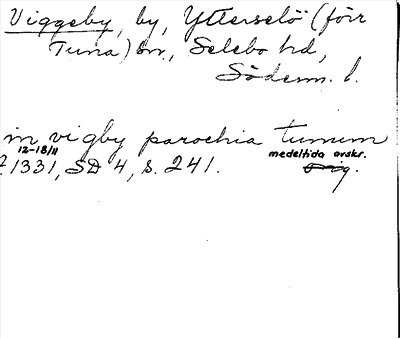 Viggeby, by, Ytterselö (förr
Tuna) sn., Selebo hd,
Söderm. l.
in vigby parochia tunum
12-18/11 medeltida avskr.
1331, SD 4, s. 241. orig.